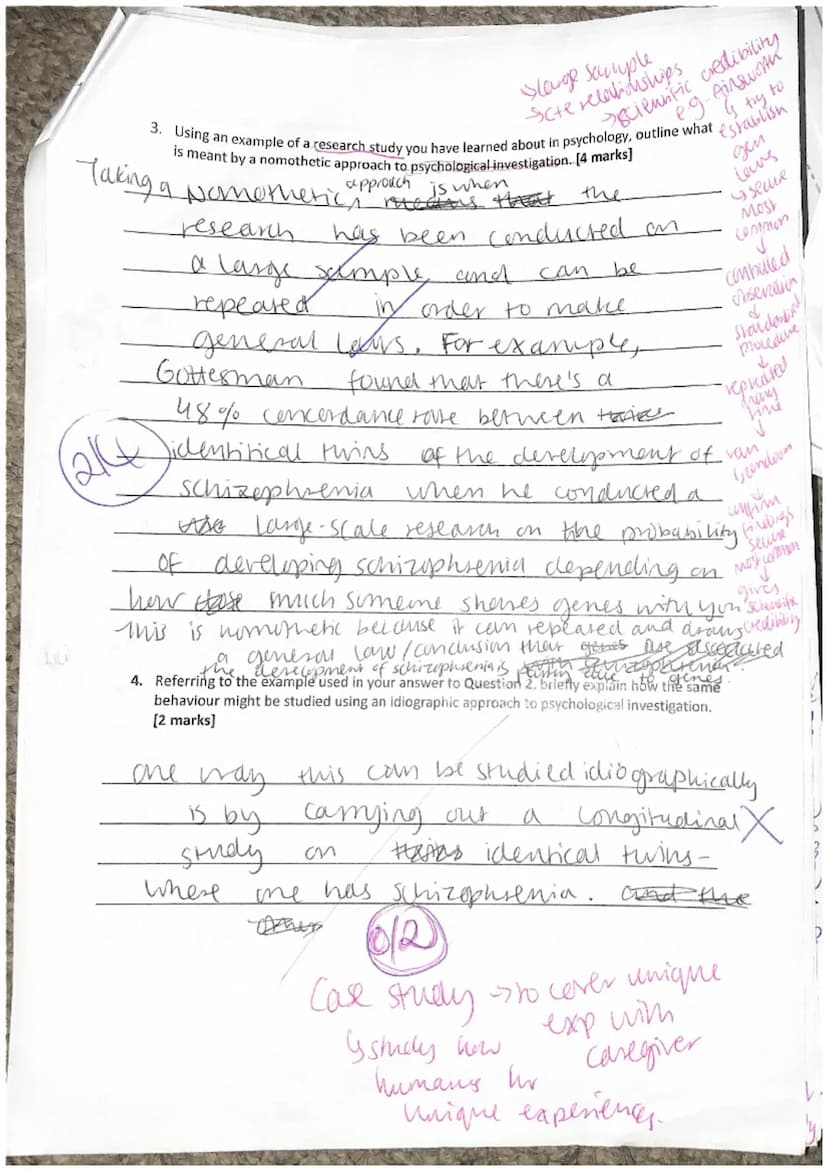 →large sample
→c+e relationships
→scientific credibility
e.g. Ainsworth
↳ try to
establish
gen
laws
↳secure
most
common
↓
controlled
observation
&
standardised
procedure
↓
repeated
many
time
↓
van
Ijzendoorn
↓
confirm
findings
secure
most common
↓
gives
scientific
credibility
3. Using an example of a research study you have learned about in psychology, outline what
is meant by a nomothetic approach to psychological investigation. [4 marks]
Taking a Nomothetic approach is when means that the
research has been conducted on
a large sample and can be
repeated in order to make
general laws. For example,
Gottesman found that there's a
48% concordance rate between twins
2/4
identitical twins of the development of
schizophrenia when he conducted a
large-scale research on the probability
of developing schizophrenia depending on
how much someone shares genes with you
This is nomothetic because it can repeated and draws
a general law/conclusion that genes are associated
the development of schizophrenia is with schizophrenia partly due to genes.
4. Referring to the example used in your answer to Question 2, briefly explain how the same
behaviour might be studied using an idiographic approach to psychological investigation.
[2 marks]
one way this can be studied idiographically
is by carrying out a longitudinal X
study on twins identical twins -
where one has schizophrenia. and the
other
0/2
Case study → to cover unique
exp with
caregiver
↳study how
humans hv
unique experiences.